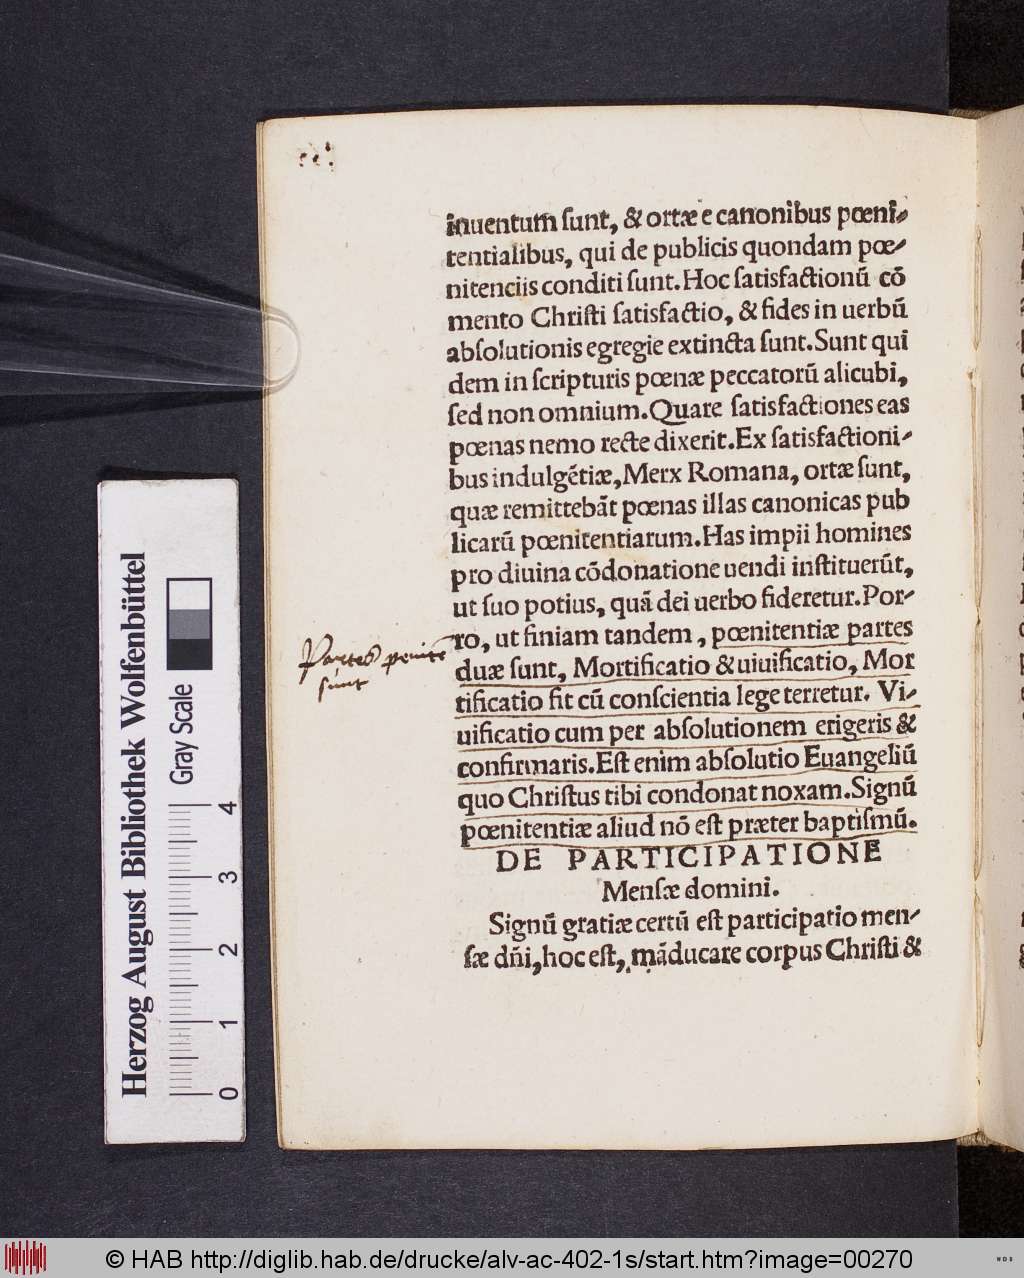 inuentum sunt, & ortæ e canonibus pœni-
tentialibus, qui de publicis quondam pœ-
nitenciis conditi sunt. Hoc satisfactionū cō
mento Christi satisfactio, & fides in uerbū
absolutionis egregie extincta sunt. Sunt qui
dem in scripturis pœnæ peccatorū alicubi,
sed non omnium. Quare satisfactiones eas
pœnas nemo recte dixerit. Ex satisfactioni-
bus indulgētiæ, Merx Romana, ortæ sunt,
quæ remittebāt pœnas illas canonicas pub
licarū pœnitentiarum. Has impii homines
pro diuina cōdonatione uendi instituerūt,
ut suo potius, quā dei uerbo fideretur. Por-
ro, ut finiam tandem, pœnitentiæ partes
duæ sunt, Mortificatio & uiuificatio, Mor
tificatio fit cū conscientia lege terretur. Vi-
uificatio cum per absolutionem erigeris &
confirmaris. Est enim absolutio Euangeliū
quo Christus tibi condonat noxam. Signū
pœnitentiæ aliud nō est præter baptismū.
Partes penitē
sunt
DE PARTICIPATIONE
Mensæ domini.
Signū gratiæ certū est participatio men-
sæ dñi, hoc est, māducare corpus Christi &
Herzog August Bibliothek Wolfenbüttel
Gray Scale
0 1 2 3 4
© HAB http://diglib.hab.de/drucke/alv-ac-402-1s/start.htm?image=00270